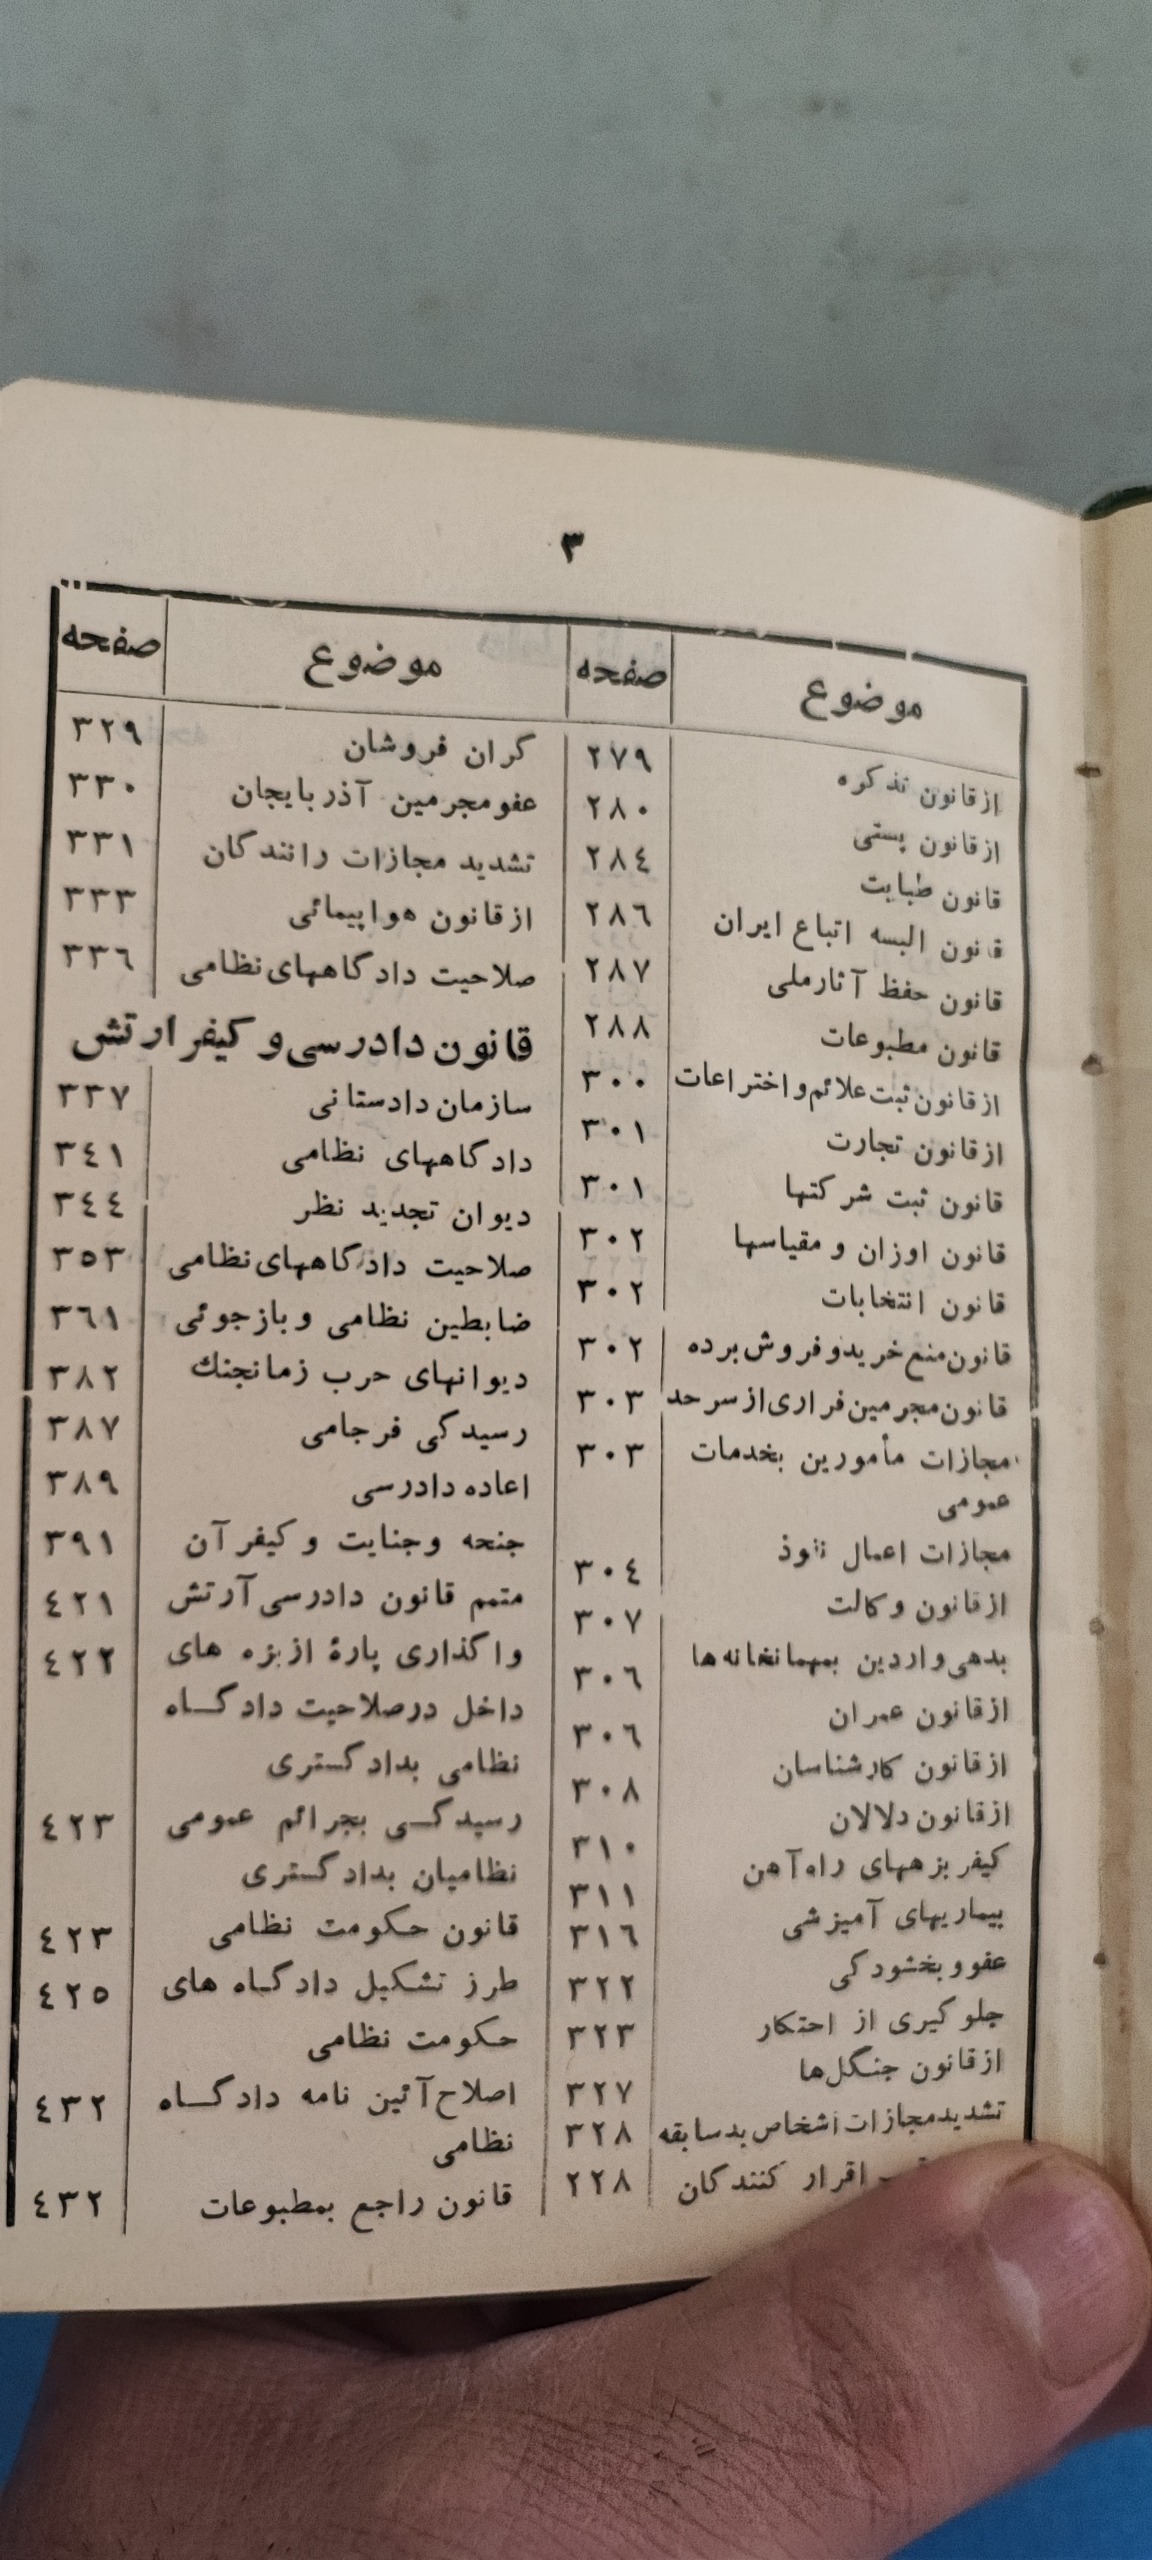 ۳
موضوع صفحه
از قانون تذکره ۲۷۹
از قانون پستی ۲۸۰
قانون طبابت ۲۸٤
قانون البسه اتباع ایران ۲۸٦
قانون حفظ آثار ملی ۲۸۷
قانون مطبوعات ۲۸۸
از قانون ثبت علائم و اختراعات ۳۰۰
از قانون تجارت ۳۰۱
قانون ثبت شرکتها ۳۰۱
قانون اوزان و مقیاسها ۳۰۲
قانون انتخابات ۳۰۲
قانون منع خرید و فروش برده ۳۰۲
قانون مجرمین فراری از سرحد ۳۰۳
مجازات مأمورین بخدمات ۳۰۳
عمومی
مجازات اعمال نفوذ ۳۰٤
از قانون وکالت ۳۰۷
بدهی واردین بمهمانخانه ها ۳۰٦
از قانون عمران ۳۰٦
از قانون کارشناسان ۳۰۸
از قانون دلالان ۳۱۰
کیفر بزههای راه آهن ۳۱۱
بیماریهای آمیزشی ۳۱٦
عفو و بخشودگی ۳۲۲
جلوگیری از احتکار ۳۲۳
از قانون جنگل‌ها ۳۲۷
تشدید مجازات اشخاص بدسابقه ۳۲۸
اقرار کنندگان ۲۲۸
موضوع صفحه
گران فروشان ۳۲۹
عفو مجرمین آذربایجان ۳۳۰
تشدید مجازات رانندگان ۳۳۱
از قانون هواپیمائی ۳۳۳
صلاحیت دادگاههای نظامی ۳۳٦
قانون دادرسی و کیفر ارتش
سازمان دادستانی ۳۳۷
دادگاههای نظامی ۳٤۱
دیوان تجدید نظر ۳٤٤
صلاحیت دادگاههای نظامی ۳٥۳
ضابطین نظامی و بازجوئی ۳٦۱
دیوانهای حرب زمانجنك ۳۸۲
رسیدگی فرجامی ۳۸۷
اعاده دادرسی ۳۸۹
جنحه و جنایت و کیفر آن ۳۹۱
متمم قانون دادرسی آرتش ٤۲۱
واگذاری پارهٔ از بزه های ٤۲۲
داخل در صلاحیت دادگاه
نظامی بدادگستری
رسیدگی بجرائم عمومی ٤۲۳
نظامیان بدادگستری
قانون حکومت نظامی ٤۲۳
طرز تشکیل دادگاه های ٤۲٥
حکومت نظامی
اصلاح آئین نامه دادگاه ٤۳۲
نظامی
قانون راجع بمطبوعات ٤۳۲